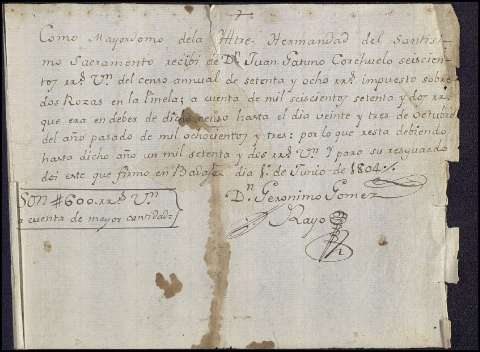 Como Mayordomo dela Yltre. Hermandad del Santisi-
mo Sacramento recibi de Dn. Juan Patino Corchuelo seiscien-
tos rrs. Vn. del censo annual de setenta y ocho rrs. impuesto sobre
dos Rozas en la a cuenta de mil seiscientos setenta y dos rrs.
que era en deber de dicho censo hasta el dia veinte y tres de Octubre
del año pasado de mil ochocientos y tres: por lo que resta debiendo
hasta dicho año un mil setenta y dos rrs. Vn. Y para su resguardo
doi este que firmo en dia 1º. de Junio de 1804.
Dn. Geronimo Gomez
Rayo
SON #600.rrs. Vn.
a cuenta de mayor cantidad